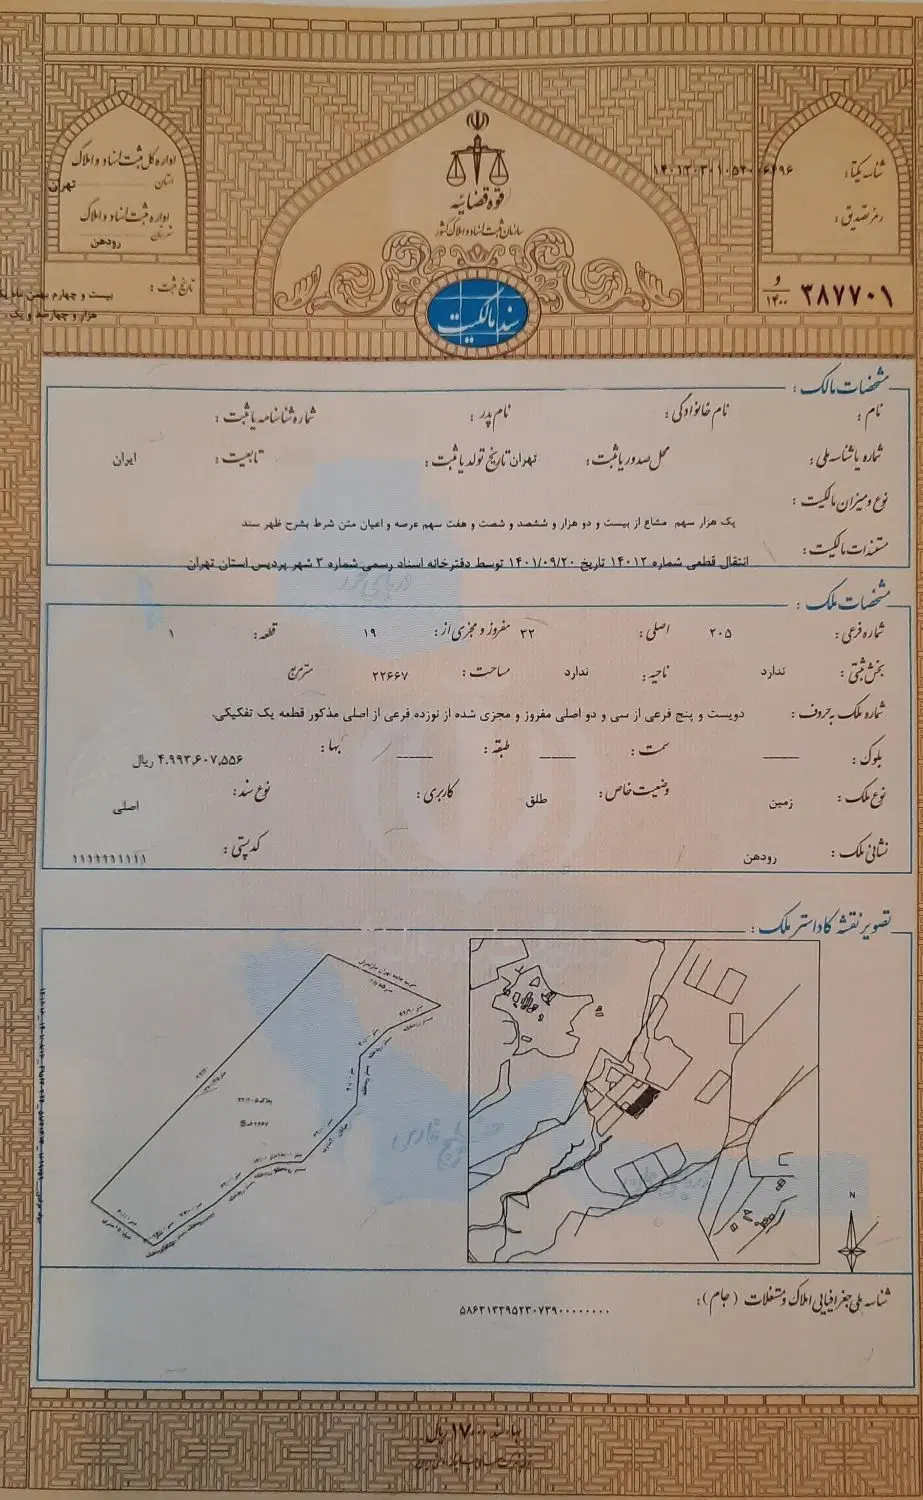 اداره کل ثبت اسناد و املاک
استان تهران
اداره ثبت اسناد و املاک
شهرستان رودهن
تاریخ ثبت : بیست و چهارم بهمن ماه یک
هزار و چهارصد و یک
قوه قضائیه
سازمان ثبت اسناد و املاک کشور
سند مالکیت
شناسه یکتا :
رمز تصدیق :
و
۱۴۰۰
۳۸۷۷۰۱
مشخصات مالک :
نام : نام خانوادگی : نام پدر : شماره شناسنامه یا ثبت :
شماره یا شناسه ملی : محل صدور یا ثبت : تهران تاریخ تولد یا ثبت : تابعیت : ایران
نوع و میزان مالکیت :
یک هزار سهم مشاع از بیست و دو هزار و ششصد و شصت و هفت سهم عرصه و اعیان متن شرط بشرح ظهر سند
مستندات مالکیت :
انتقال قطعی شماره ۱۴۰۱۲ تاریخ ۱۴۰۱/۰۹/۲۰ توسط دفترخانه اسناد رسمی شماره ۳ شهر پردیس استان تهران
دریای خزر
مشخصات ملک :
شماره فرعی : ۲۰۵ اصلی : ۳۲ مفروز و مجزی از : ۱۹ قطعه : ۱
بخش ثبتی : ندارد ناحیه : ندارد مساحت : ۲۲۶۶۷ مترمربع
شماره ملک به حروف : دویست و پنج فرعی از سی و دو اصلی مفروز و مجزی شده از نوزده فرعی از اصلی مذکور قطعه یک تفکیکی.
بلوک : سمت : طبقه : بها : ۴،۹۹۳،۶۰۷،۵۵۶ ریال
نوع ملک : زمین وضعیت خاص : طلق کاربری : نوع سند : اصلی
نشانی ملک : رودهن کد پستی : ۱۱۱۱۱۱۱۱۱۱
تصویر نقشه کاداستر ملک :
خلیج فارس
N
شناسه ملی جغرافیایی املاک و مستغلات (جام) :
بهای سند ۱۷۰۰۰ ریال